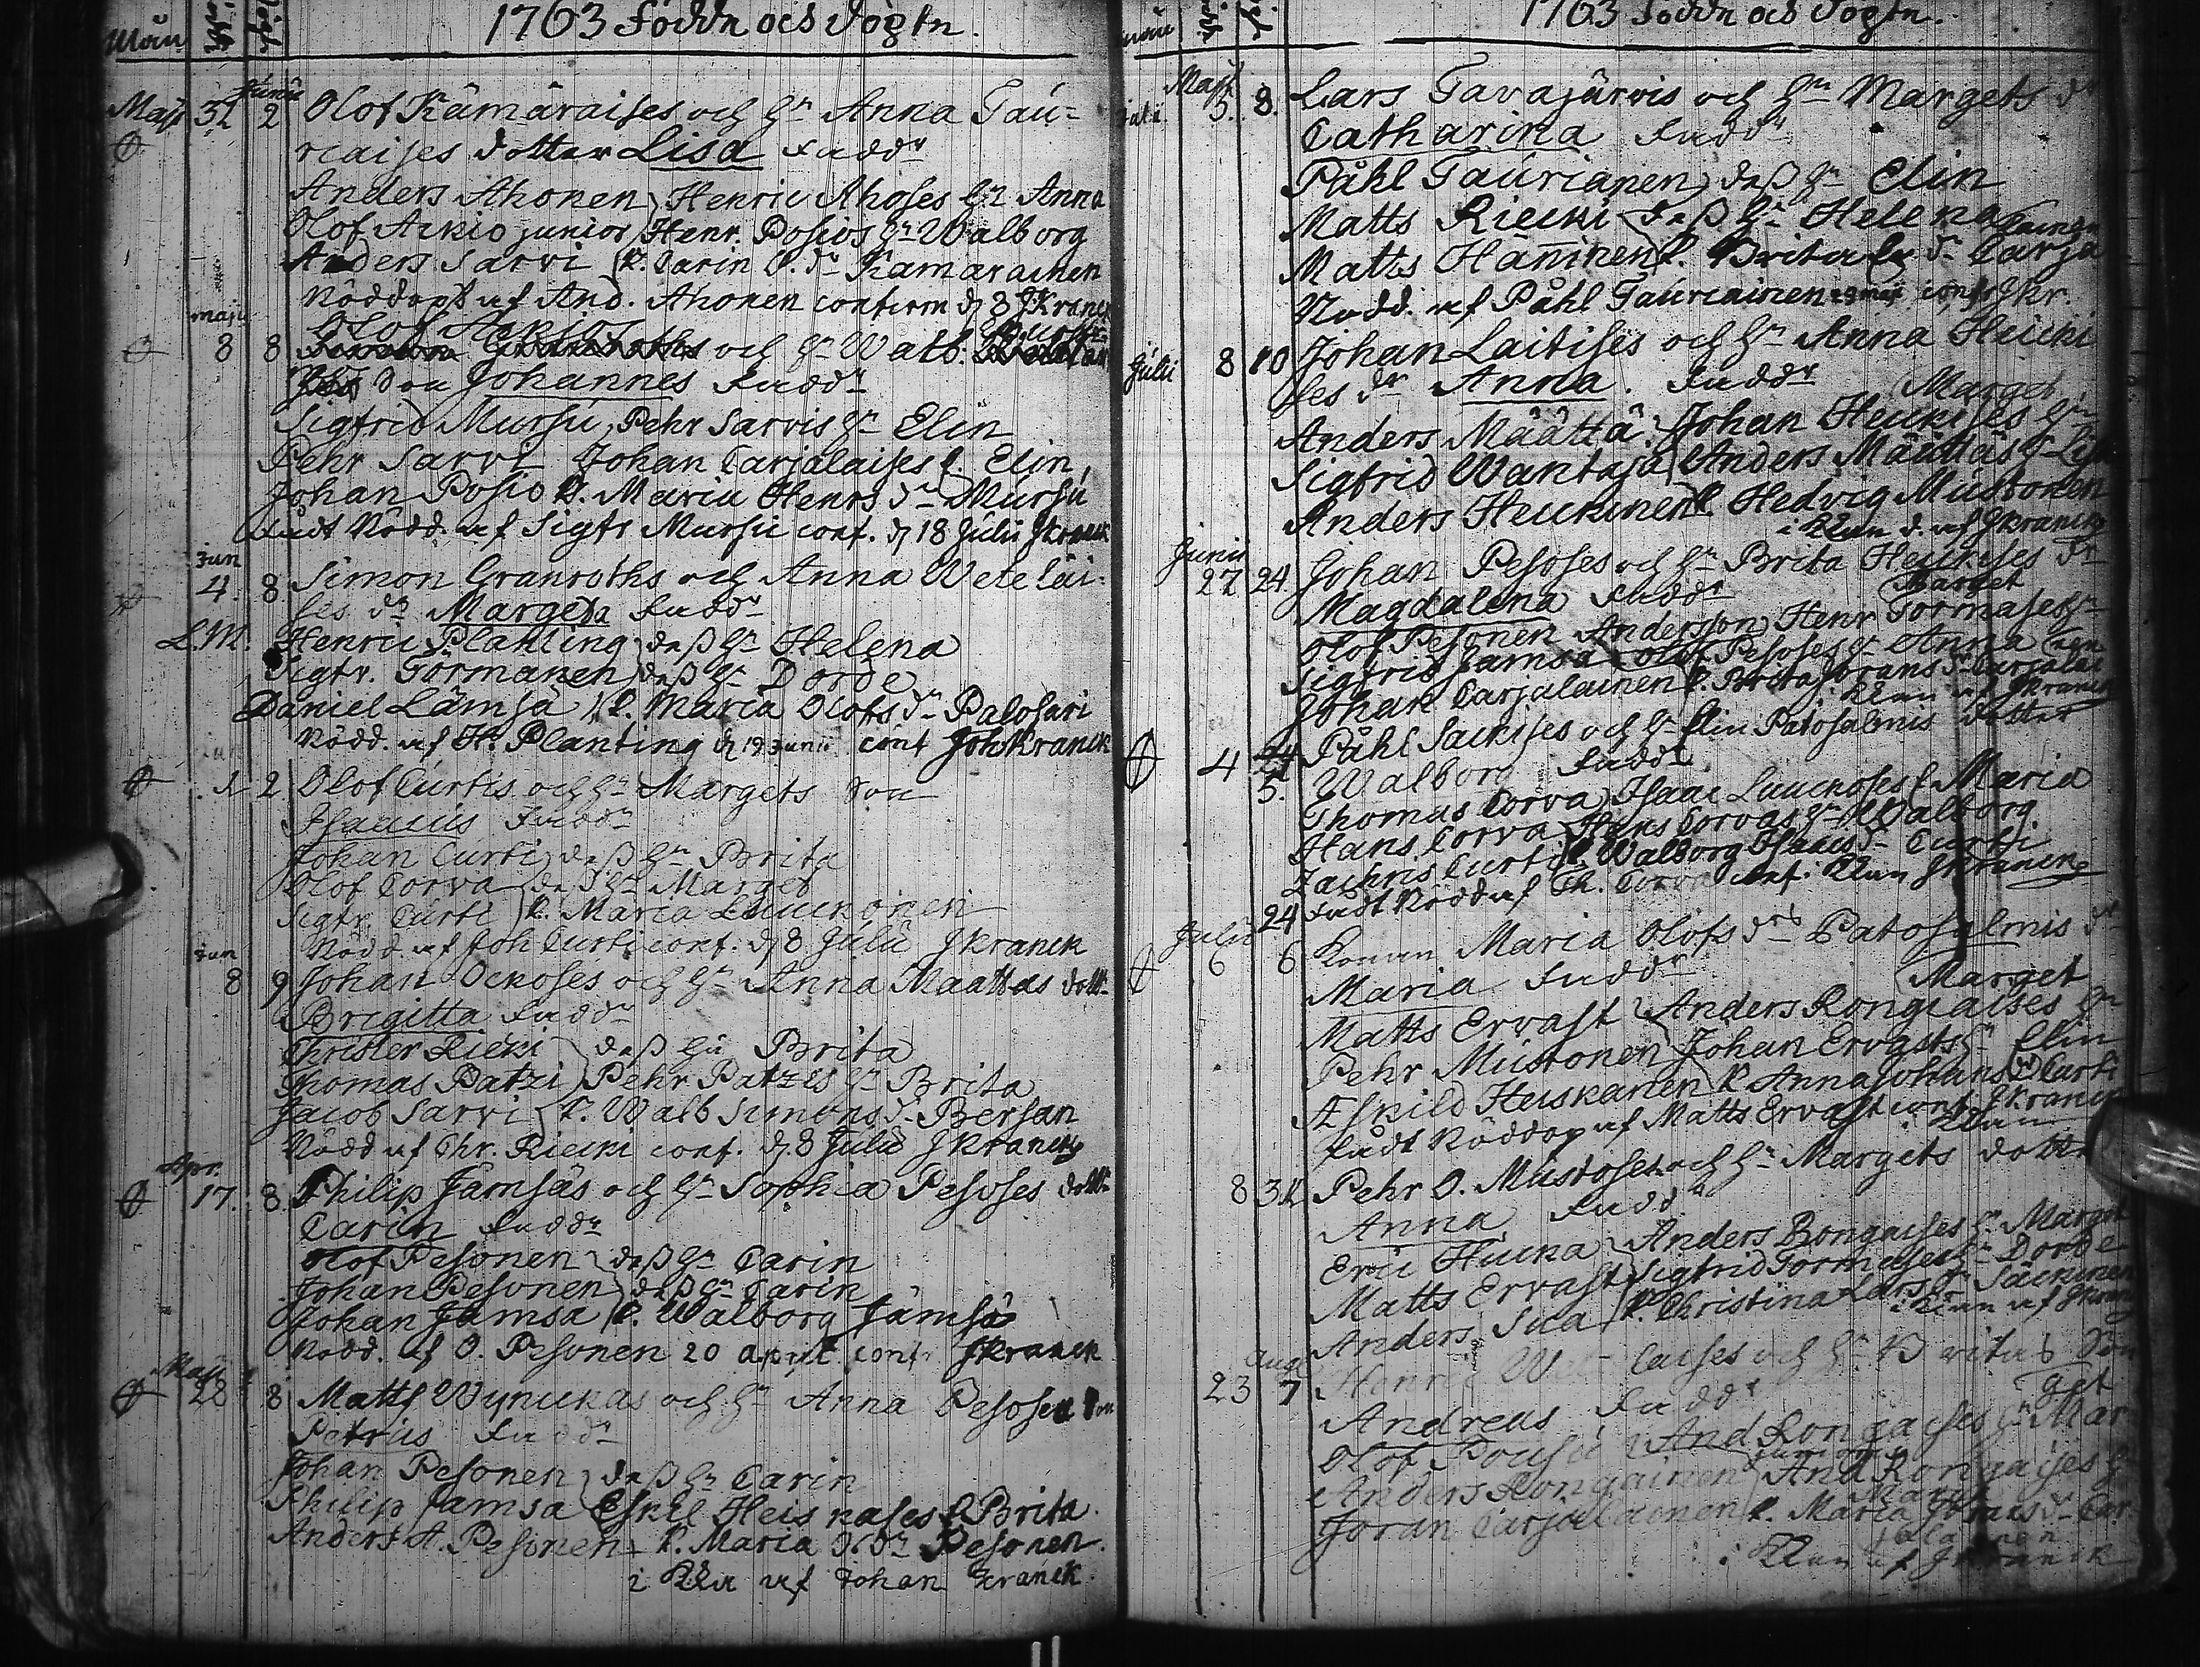 1763 Föddn och Dögtn.
Junii
Maji 31 2 Olof Kämäraises och hn Anna Tau-
riaises dotter Lisa Faddr
Anders Ahonen Henric Ahoses hn Anna
Olof Ackio junior Henr. Posios hn Walborg
Anders Sarvi P. Carin O. dr Kämäräinen
Nöddöpt af And. Ahonen confirm d 8 JKranck
Maji
8 8 Olof Ackios och hn Walb.
Son Johannes Faddr
Sigfrid Mursu, Pehr Sarvis hn Elin
Pehr Sarvi Johan Carjalaises P. Elin,
Johan Posio P. Maria Henrs dr Mursu
Nödd. af Sigfr Mursu conf. d 18 Julii JKranck
Jun
4. 8 Simon Granroths och Anna Weteläi-
ses dr Margeta Faddr
L.M. Henric Planting dess hn Helena
Sigfr. Törmänen dess hn Dorde
Daniel Lämsä P. Maria Olofs dr Palosari
Nödd. af H. Planting d 19 Junii conf JohKranck
1 2 Olof Curtis och hn Margets Son
Isacus Faddr
Johan Curti dess hn Brita
Olof Corva dess hn Marget
Sigfr. Curti P. Maria Luuckonen
Nödd. af Joh Curti conf. d 8 Julii JKranck
Jun
8 9 Johan Ockoses och hn Anna Määttäs dott
Brigitta Faddr
Christer Riecki dess hn Brita
Thomas Pätzi Pehr Pätzes hn Brita
Jacob Sarvi P. Walb Simons dr Bersan
Nödd af Chr. Riecki conf. d. 8 Julii JKranck
Apr.
17. 8 Philip Jämsäs och hn Sophia Pesoses dott
Carin Faddr
Olof Pesonen dess hn Carin
Johan Pesonen dess hn Carin
Johan Jämsä P. Walborg Jämsä
Nödd. af O. Pesonen 20 april conf JKranck
Maji
28 8 Matts Wynuckas och hn Anna Pesoses Son
Petrus Faddr
Johan Pesonen dess hn Carin
Philip Jämsä Eskel Heiskases P. Brita
Anders A. Pesonen P. Maria O. dr Pesonen.
af Johan Kranck.
1763 Föddn och Dögtn.
Maji
5. 8. Lars Tavajärvis och hn Margets dr
Catharina Faddr
Påhl Tauriainen dess hn Elin
Matts Riecki dess hn Helena
Matts Hänninen P. Brita dr Carja
lainen
Nödd. af Påhl Tauriainen conf JKr.
Julii 8 10 Johan Laitises och hn Anna Heicki
ses dr Anna. Faddr
Marget
Anders Määttä Johan Heickises hn
Sigfrid Wantaja Anders Määttäs hn Lisa
Anders Heickinen P. Hedvig Mustonen
af JKranck
Junii
27 24 Johan Pesoses och hn Brita Heickises dr
Magdalena Faddr Marget
Olof Pesonen Andersson Henr Törmäses hn
Sigfrid Jämsä Olof Pesoses hn Anna
Johan Carjalainen P. Brita Jörans dr Carjalai
nen
af JKranck
4 24 Påhl Säckises och hn Elin Patosalmis dotter
5. Walborg Faddr
Thomas Corva Isaac Luuckoses P. Maria
Hans Corva Hans Corvas hn Walborg
Zachris Curti P. Walborg Olaus dr Curtti
Nödd af Th. Corva conf. JKranck
24
Julii
6 6 Konan Maria Olofs dr Patosalmis dr
Maria Faddr Marget
Matts Ervast Anders Rongaises hn
Pehr Mustonen Johan Ervasts hn Elin
Æskild Heiskanen P. Anna Johans dr Curti
Nöddöp af Matts Ervast conf JKranck
8 31 Pehr O. Mustoses och hn Margets dotter
Anna Faddr
Eric Hucka Anders Rongaises hn Marget
Matts Ervast Sigfrid Törmäses hn Dorde
Anders Sua P. Christina Lars dr Säckinen
af JKranck
Aug
23 7 Henric Wetelaises och hn Britas Son
Andreas Faddr
Olof Pousu And Rongaises hn Mar
get
Anders Rongainen junior And Rongaises hn
Jöran Carjalainen P. Maria Jörans dr Car
jalainen
af JKranck